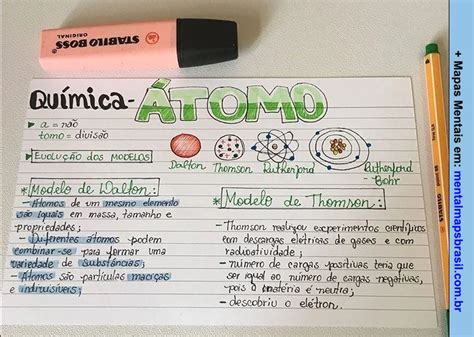 STABILO BOSS
ORIGINAL
QUÍMICA - ÁTOMO
a = não
tomo = divisão
EVOLUÇÃO DOS MODELOS
Dalton Thomson Rutherford Rutherford
Bohr
* Modelo de Dalton:
- Átomos de um mesmo elemento
são iguais em massa, tamanho e
propriedades;
- Diferentes átomos podem
combinar-se para formar uma
variedade de substâncias;
- Átomos são partículas maciças
e indivisíveis;
* Modelo de Thomson:
- Thomson realizou experimentos científicos
com descargas elétricas de gases e com
radioatividade;
- número de cargas positivas teria que
ser igual ao número de cargas negativas,
pois a matéria é neutra;
- descobriu o elétron.
STABILO
+ Mapas Mentais em: mentalmapsbrasil.com.br